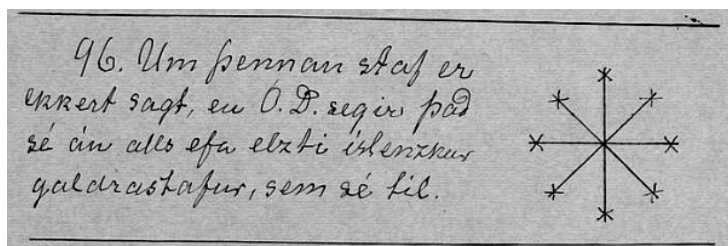 96. Um þennan staf er
ekkert sagt, en Ó. D. segir það
sé án alls efa elzti íslenzkur
galdrastafur, sem sé til.